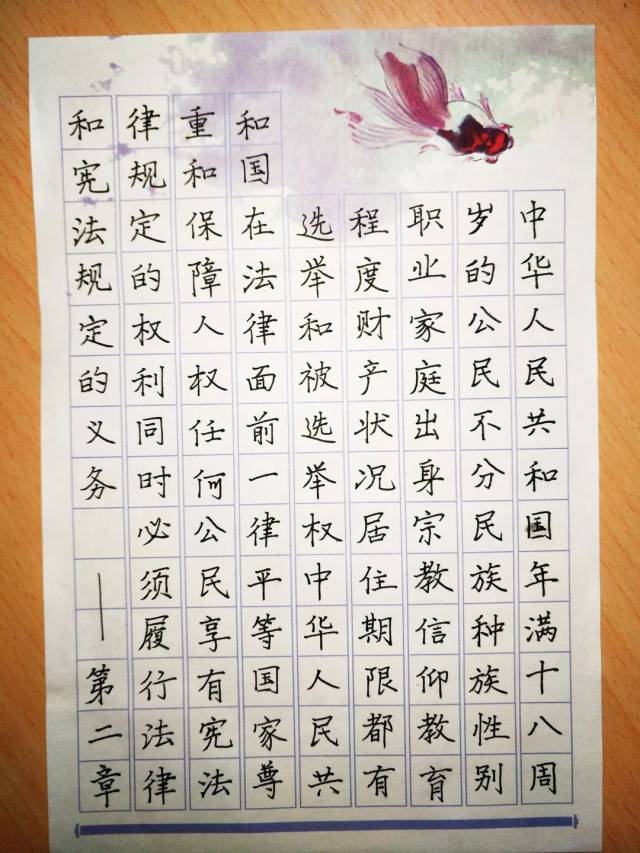 中华人民共和国年满十八周
岁的公民不分民族种族性别
职业家庭出身宗教信仰教育
程度财产状况居住期限都有
选举和被选举权中华人民共
和国在法律面前一律平等国家尊
重和保障人权任何公民享有宪法
律规定的权利同时必须履行法律
和宪法规定的义务 ——第二章